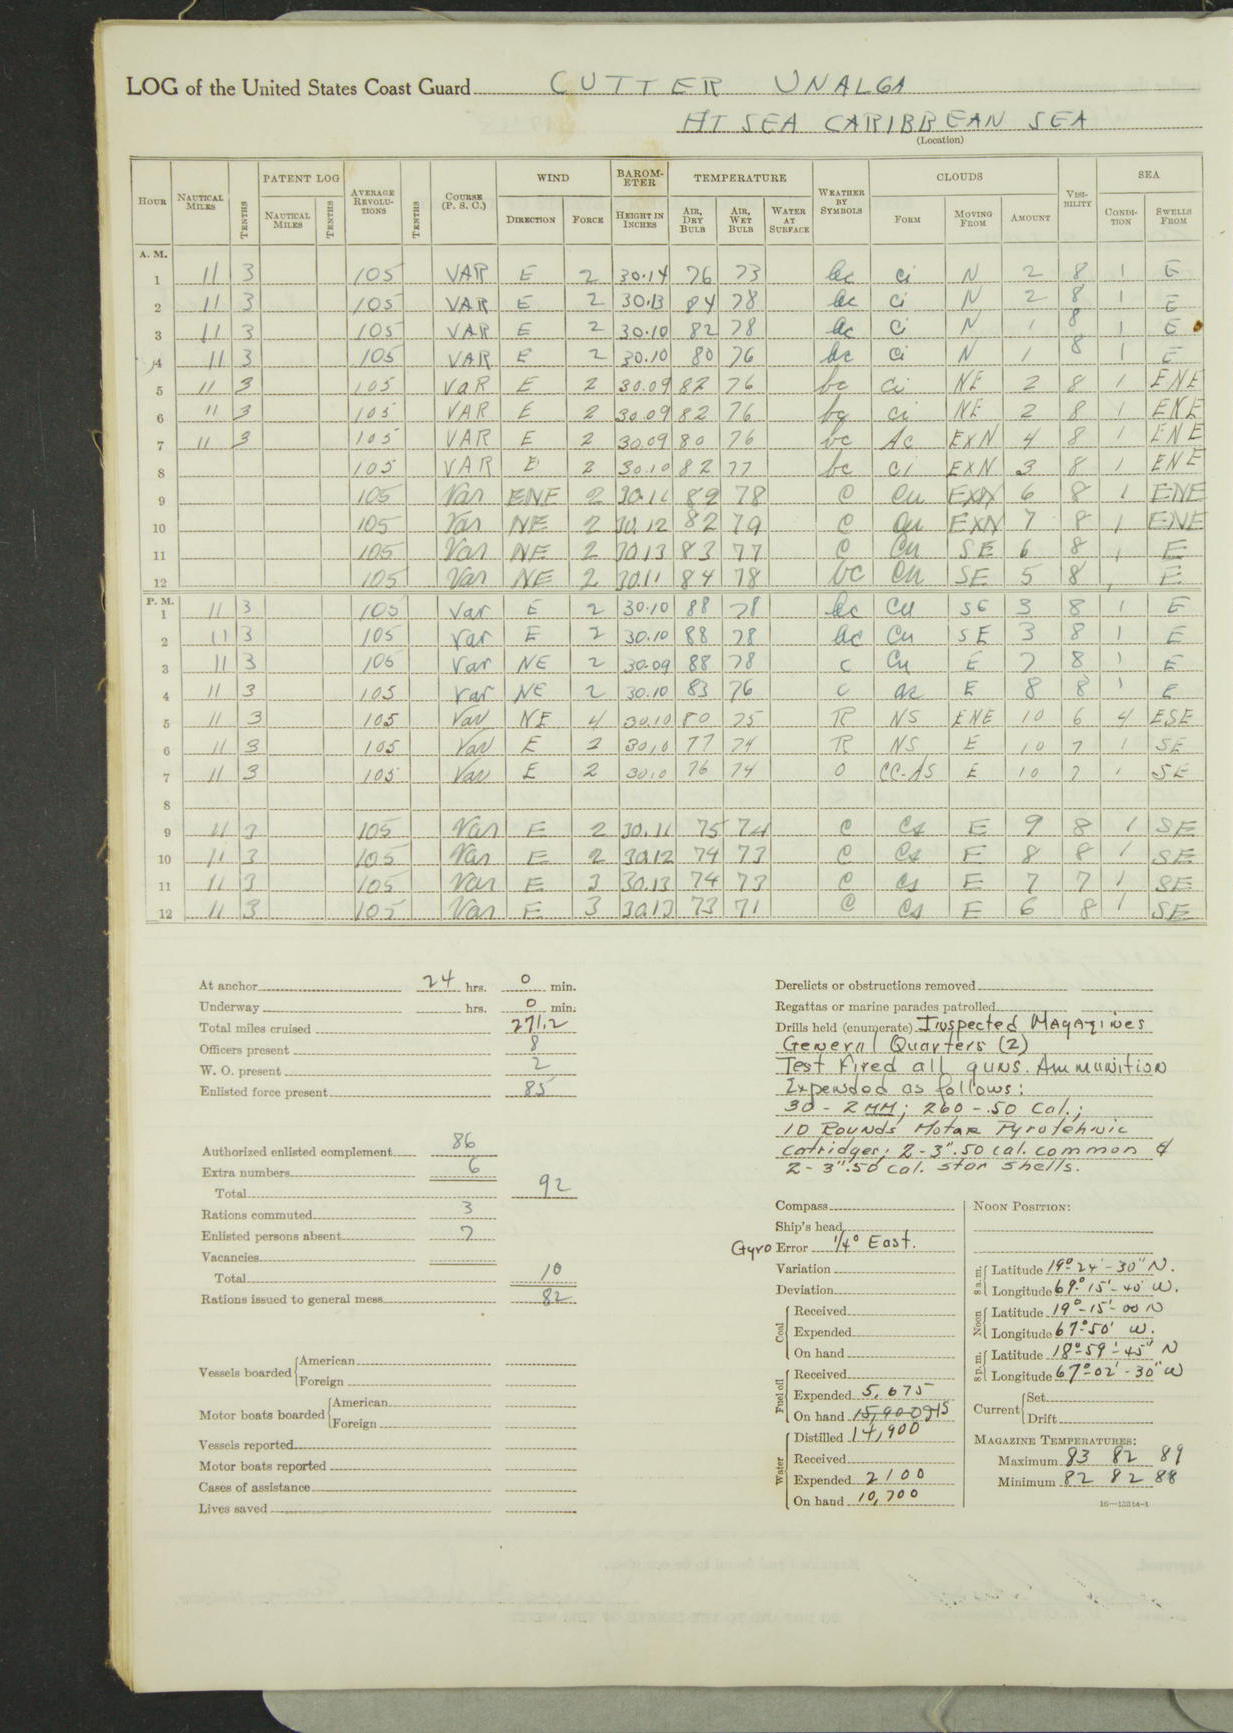 LOG of the United States Coast Guard CUTTER UNALGA
AT SEA CARIBBEAN SEA
(Location)
HOUR NAUTICAL MILES TENTHS PATENT LOG NAUTICAL MILES TENTHS AVERAGE REVOLUTIONS TENTHS COURSE (P. S. C.) WIND DIRECTION FORCE BAROMETER HEIGHT IN INCHES TEMPERATURE AIR, DRY BULB AIR, WET BULB WATER AT SURFACE WEATHER BY SYMBOLS CLOUDS FORM MOVING FROM AMOUNT VISIBILITY SEA CONDITION SWELLS FROM
A. M.
1 11 3 105 VAR E 2 30.14 76 73 bc Ci N 2 8 1 E
2 11 3 105 VAR E 2 30.13 84 78 bc Ci N 2 8 1 E
3 11 3 105 VAR E 2 30.10 82 78 bc Ci N 1 8 1 E
4 11 3 105 VAR E 2 30.10 80 76 bc Ci N 1 8 1 E
5 11 3 105 VaR E 2 30.09 82 76 bc Ci NE 2 8 1 ENE
6 11 3 105 VAR E 2 30.09 82 76 bc Ci NE 2 8 1 ENE
7 11 3 105 VAR E 2 30.09 80 76 bc Ac EXN 4 8 1 ENE
8 105 VAR E 2 30.10 82 77 bc Ci EXN 3 8 1 ENE
9 105 Var ENE 2 30.11 82 78 C Cu EXN 6 8 1 ENE
10 105 Var NE 2 30.12 82 79 C Cu EXN 7 8 1 ENE
11 105 Var NE 2 30.13 83 77 C Cu SE 6 8 1 E
12 105 Var NE 2 30.11 84 78 bc Cu SE 5 8 1 E
P. M.
1 11 3 105 Var E 2 30.10 88 78 bc Cu SE 3 8 1 E
2 11 3 105 Var E 2 30.10 88 78 bc Cu SE 3 8 1 E
3 11 3 105 Var NE 2 30.09 88 78 c Cu E 7 8 1 E
4 11 3 105 Var NE 2 30.10 83 76 c ac E 8 8 1 E
5 11 3 105 Var NE 4 30.10 80 75 R NS ENE 10 6 4 ESE
6 11 3 105 Var E 2 30.10 77 74 R NS E 10 7 1 SE
7 11 3 105 Var E 2 30.10 76 74 O CC-AS E 10 7 1 SE
8
9 11 3 105 Var E 2 30.11 75 74 C Cs E 9 8 1 SE
10 11 3 105 Var E 2 30.12 74 73 C Cs E 8 8 1 SE
11 11 3 105 Var E 3 30.13 74 73 C Cs E 7 7 1 SE
12 11 3 105 Var E 3 30.13 73 71 C Cs E 6 8 1 SE
At anchor 24 hrs. 0 min.
Underway hrs. 0 min.
Total miles cruised 271.2
Officers present 8
W. O. present 2
Enlisted force present 85
Authorized enlisted complement 86
Extra numbers 6
Total 92
Rations commuted 3
Enlisted persons absent 7
Vacancies
Total 10
Rations issued to general mess 82
Vessels boarded American
Foreign
Motor boats boarded American
Foreign
Vessels reported
Motor boats reported
Cases of assistance
Lives saved
Derelicts or obstructions removed
Regattas or marine parades patrolled
Drills held (enumerate) Inspected Magazines
General Quarters (2)
Test Fired all guns. Ammunition
Expended as follows:
30 - 2 MM; 260 - .50 Cal.;
10 Rounds Motar Pyrotehnic
Catridges; 2 - 3".50 cal. common &
2 - 3".50 cal. star shells.
Compass
Ship's head
Gyro Error 1/4° East.
Variation
Deviation
Coal Received
Expended
On hand
Fuel oil Received
Expended 5,675
On hand
Water Distilled 14,900
Received
Expended 2100
On hand 10,700
NOON POSITION:
8 a.m. Latitude 19°-24'-30" N.
Longitude 69°-15'-40" W.
Noon Latitude 19°-15'-00 N
Longitude 67°-50' W.
8 p.m. Latitude 18°-59'-45" N
Longitude 67°-02'-30" W
Current Set
Drift
MAGAZINE TEMPERATURES:
Maximum 83 82 89
Minimum 82 82 88
16—13314-1